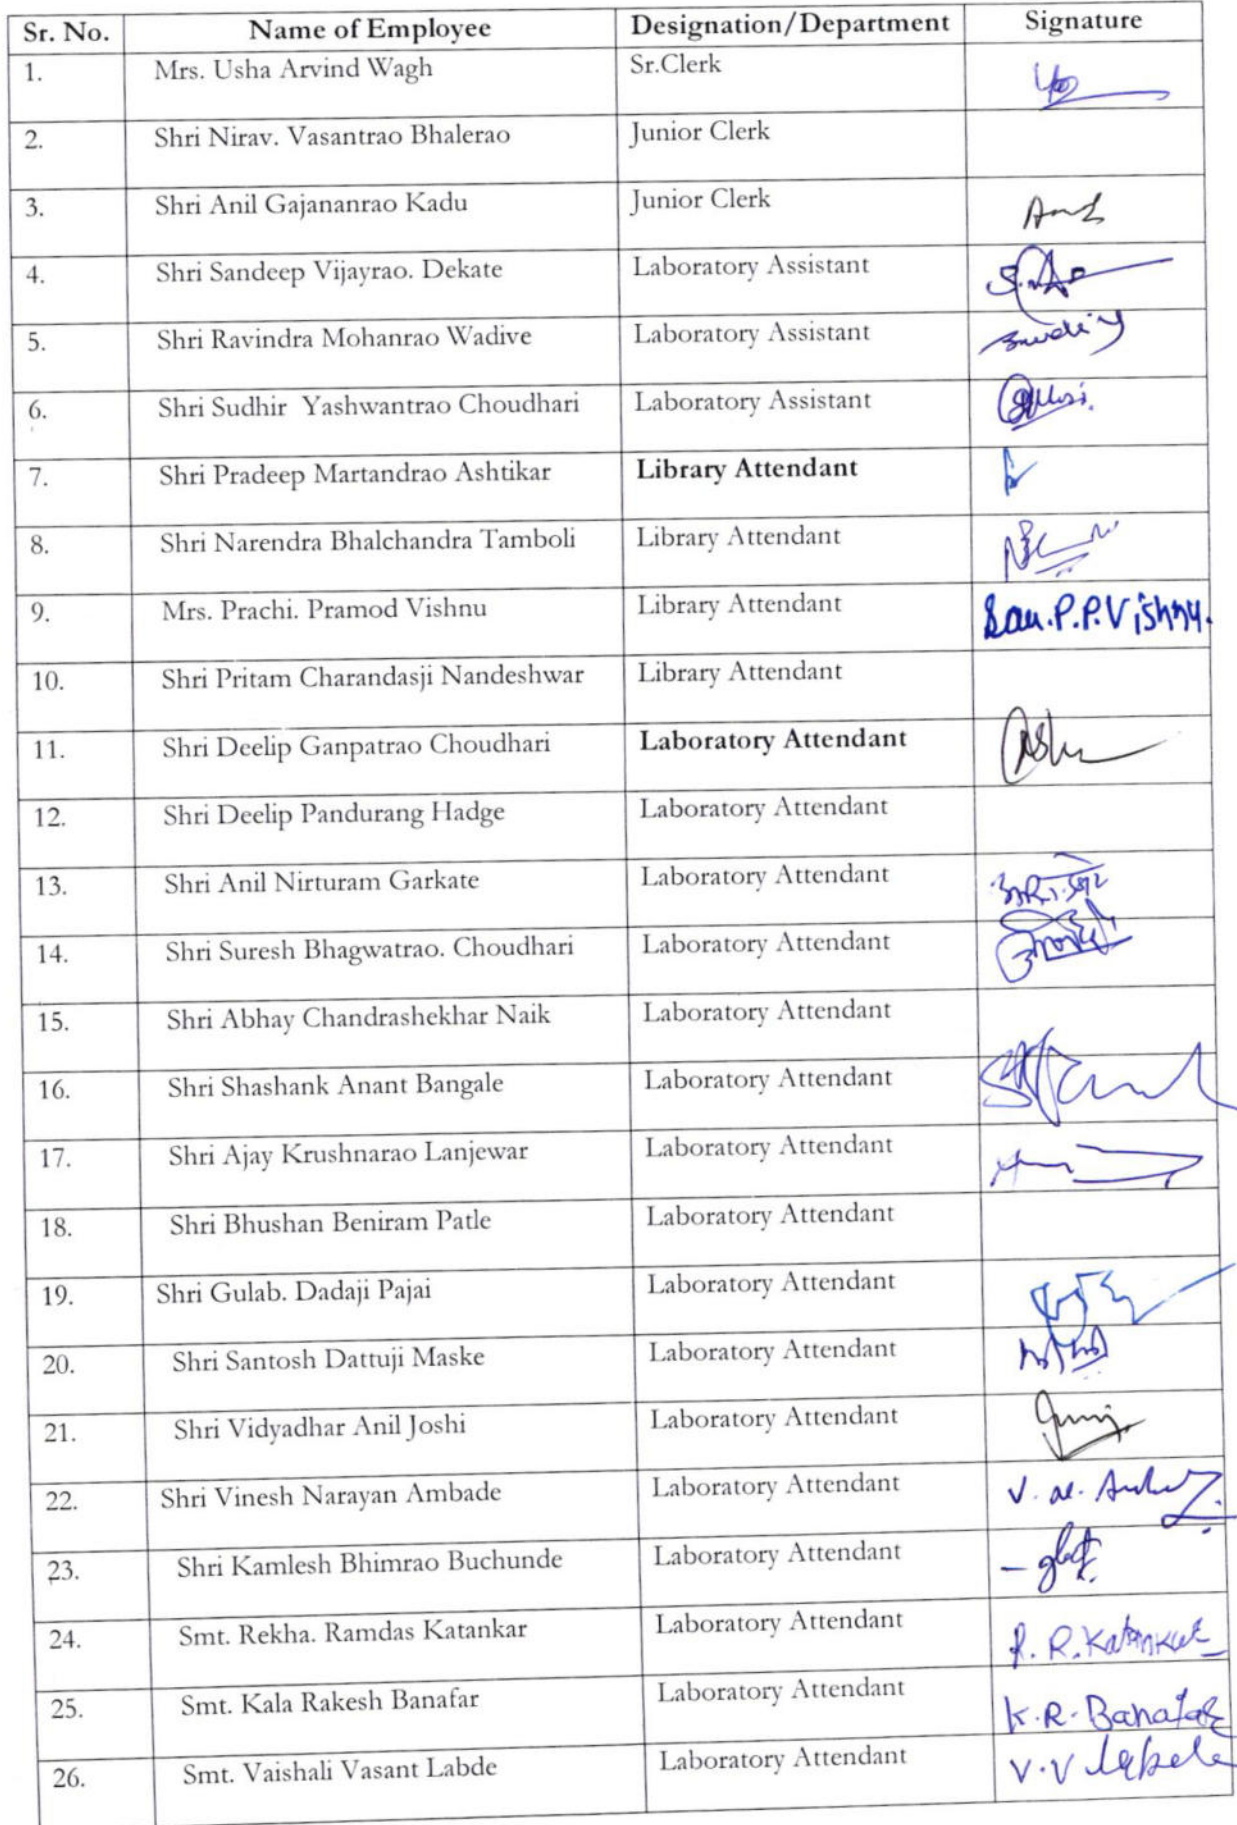 Sr. No. Name of Employee Designation/Department Signature
1. Mrs. Usha Arvind Wagh Sr.Clerk
2. Shri Nirav. Vasantrao Bhalerao Junior Clerk
3. Shri Anil Gajananrao Kadu Junior Clerk
4. Shri Sandeep Vijayrao. Dekate Laboratory Assistant
5. Shri Ravindra Mohanrao Wadive Laboratory Assistant
6. Shri Sudhir Yashwantrao Choudhari Laboratory Assistant
7. Shri Pradeep Martandrao Ashtikar Library Attendant
8. Shri Narendra Bhalchandra Tamboli Library Attendant
9. Mrs. Prachi. Pramod Vishnu Library Attendant Sau.P.P.Vishnu.
10. Shri Pritam Charandasji Nandeshwar Library Attendant
11. Shri Deelip Ganpatrao Choudhari Laboratory Attendant
12. Shri Deelip Pandurang Hadge Laboratory Attendant
13. Shri Anil Nirturam Garkate Laboratory Attendant
14. Shri Suresh Bhagwatrao. Choudhari Laboratory Attendant
15. Shri Abhay Chandrashekhar Naik Laboratory Attendant
16. Shri Shashank Anant Bangale Laboratory Attendant
17. Shri Ajay Krushnarao Lanjewar Laboratory Attendant
18. Shri Bhushan Beniram Patle Laboratory Attendant
19. Shri Gulab. Dadaji Pajai Laboratory Attendant
20. Shri Santosh Dattuji Maske Laboratory Attendant
21. Shri Vidyadhar Anil Joshi Laboratory Attendant
22. Shri Vinesh Narayan Ambade Laboratory Attendant
23. Shri Kamlesh Bhimrao Buchunde Laboratory Attendant
24. Smt. Rekha. Ramdas Katankar Laboratory Attendant R. R. Katankar
25. Smt. Kala Rakesh Banafar Laboratory Attendant K.R. Banafar
26. Smt. Vaishali Vasant Labde Laboratory Attendant V.V